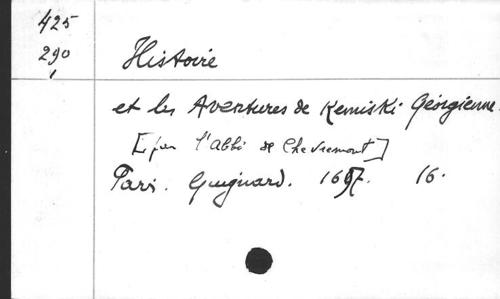 425
290
1
Histoire
et les Aventures de Kemiski Géorgienne.
[par l'abbé de Chevremont]
Paris. Guignard. 1697. 16.